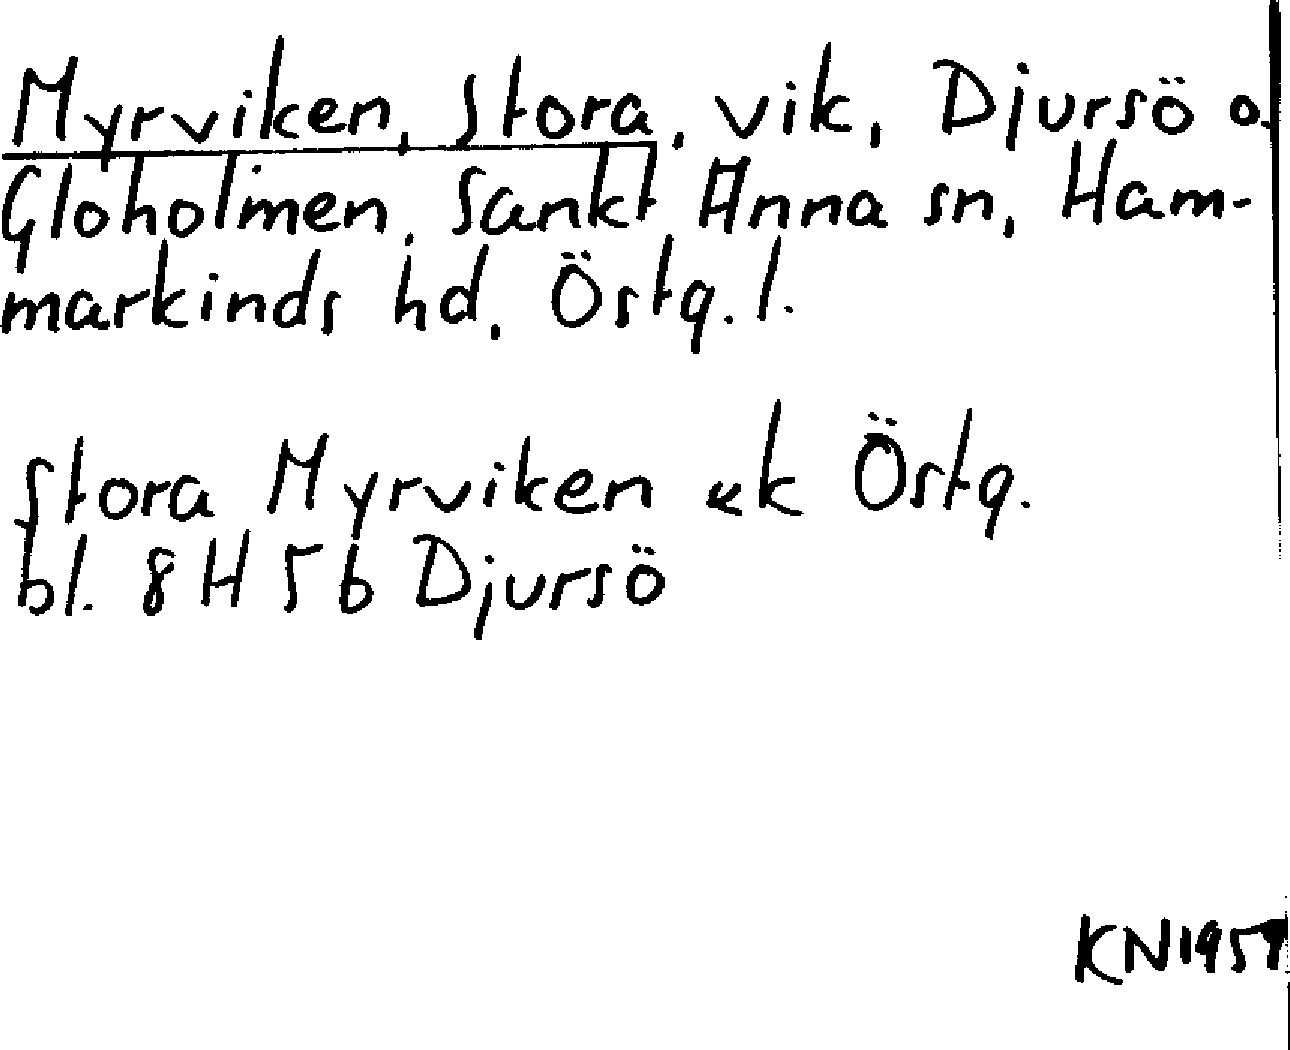 Myrviken, Stora, vik, Djursö o.
Gloholmen, Sankt Anna sn, Ham-
markinds hd, Östg. l.
Stora Myrviken ek Östg.
bl. 8H 5b Djursö